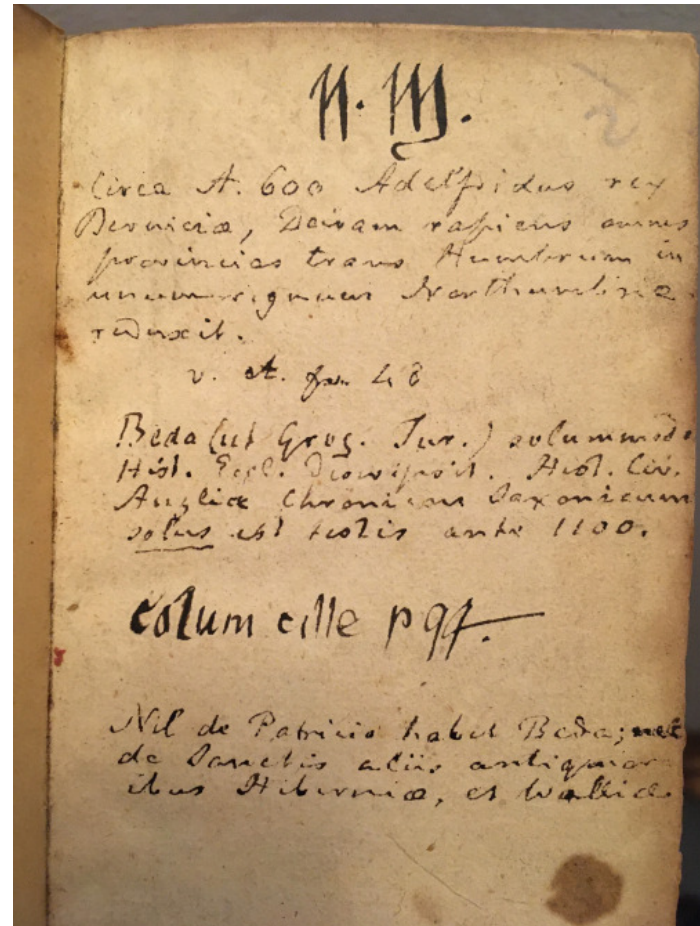 Circa A. 600 Adelfridus rex
Berniciæ, Deiram rapiens omnes
provincias trans Humbrum in
unum regnum
reduxit.
v. A. 48
Beda (ut Greg. Tur.) solummodo
Hist. Eccl. Hist. Civ.
Angliæ Chronicon Saxonicum
solus est testis ante 1100.
Colum cille p 97.
Nil de Patricio habet Beda; nec
de Sanctis aliis antiquior
ibus Hiberniæ, et Walliæ.